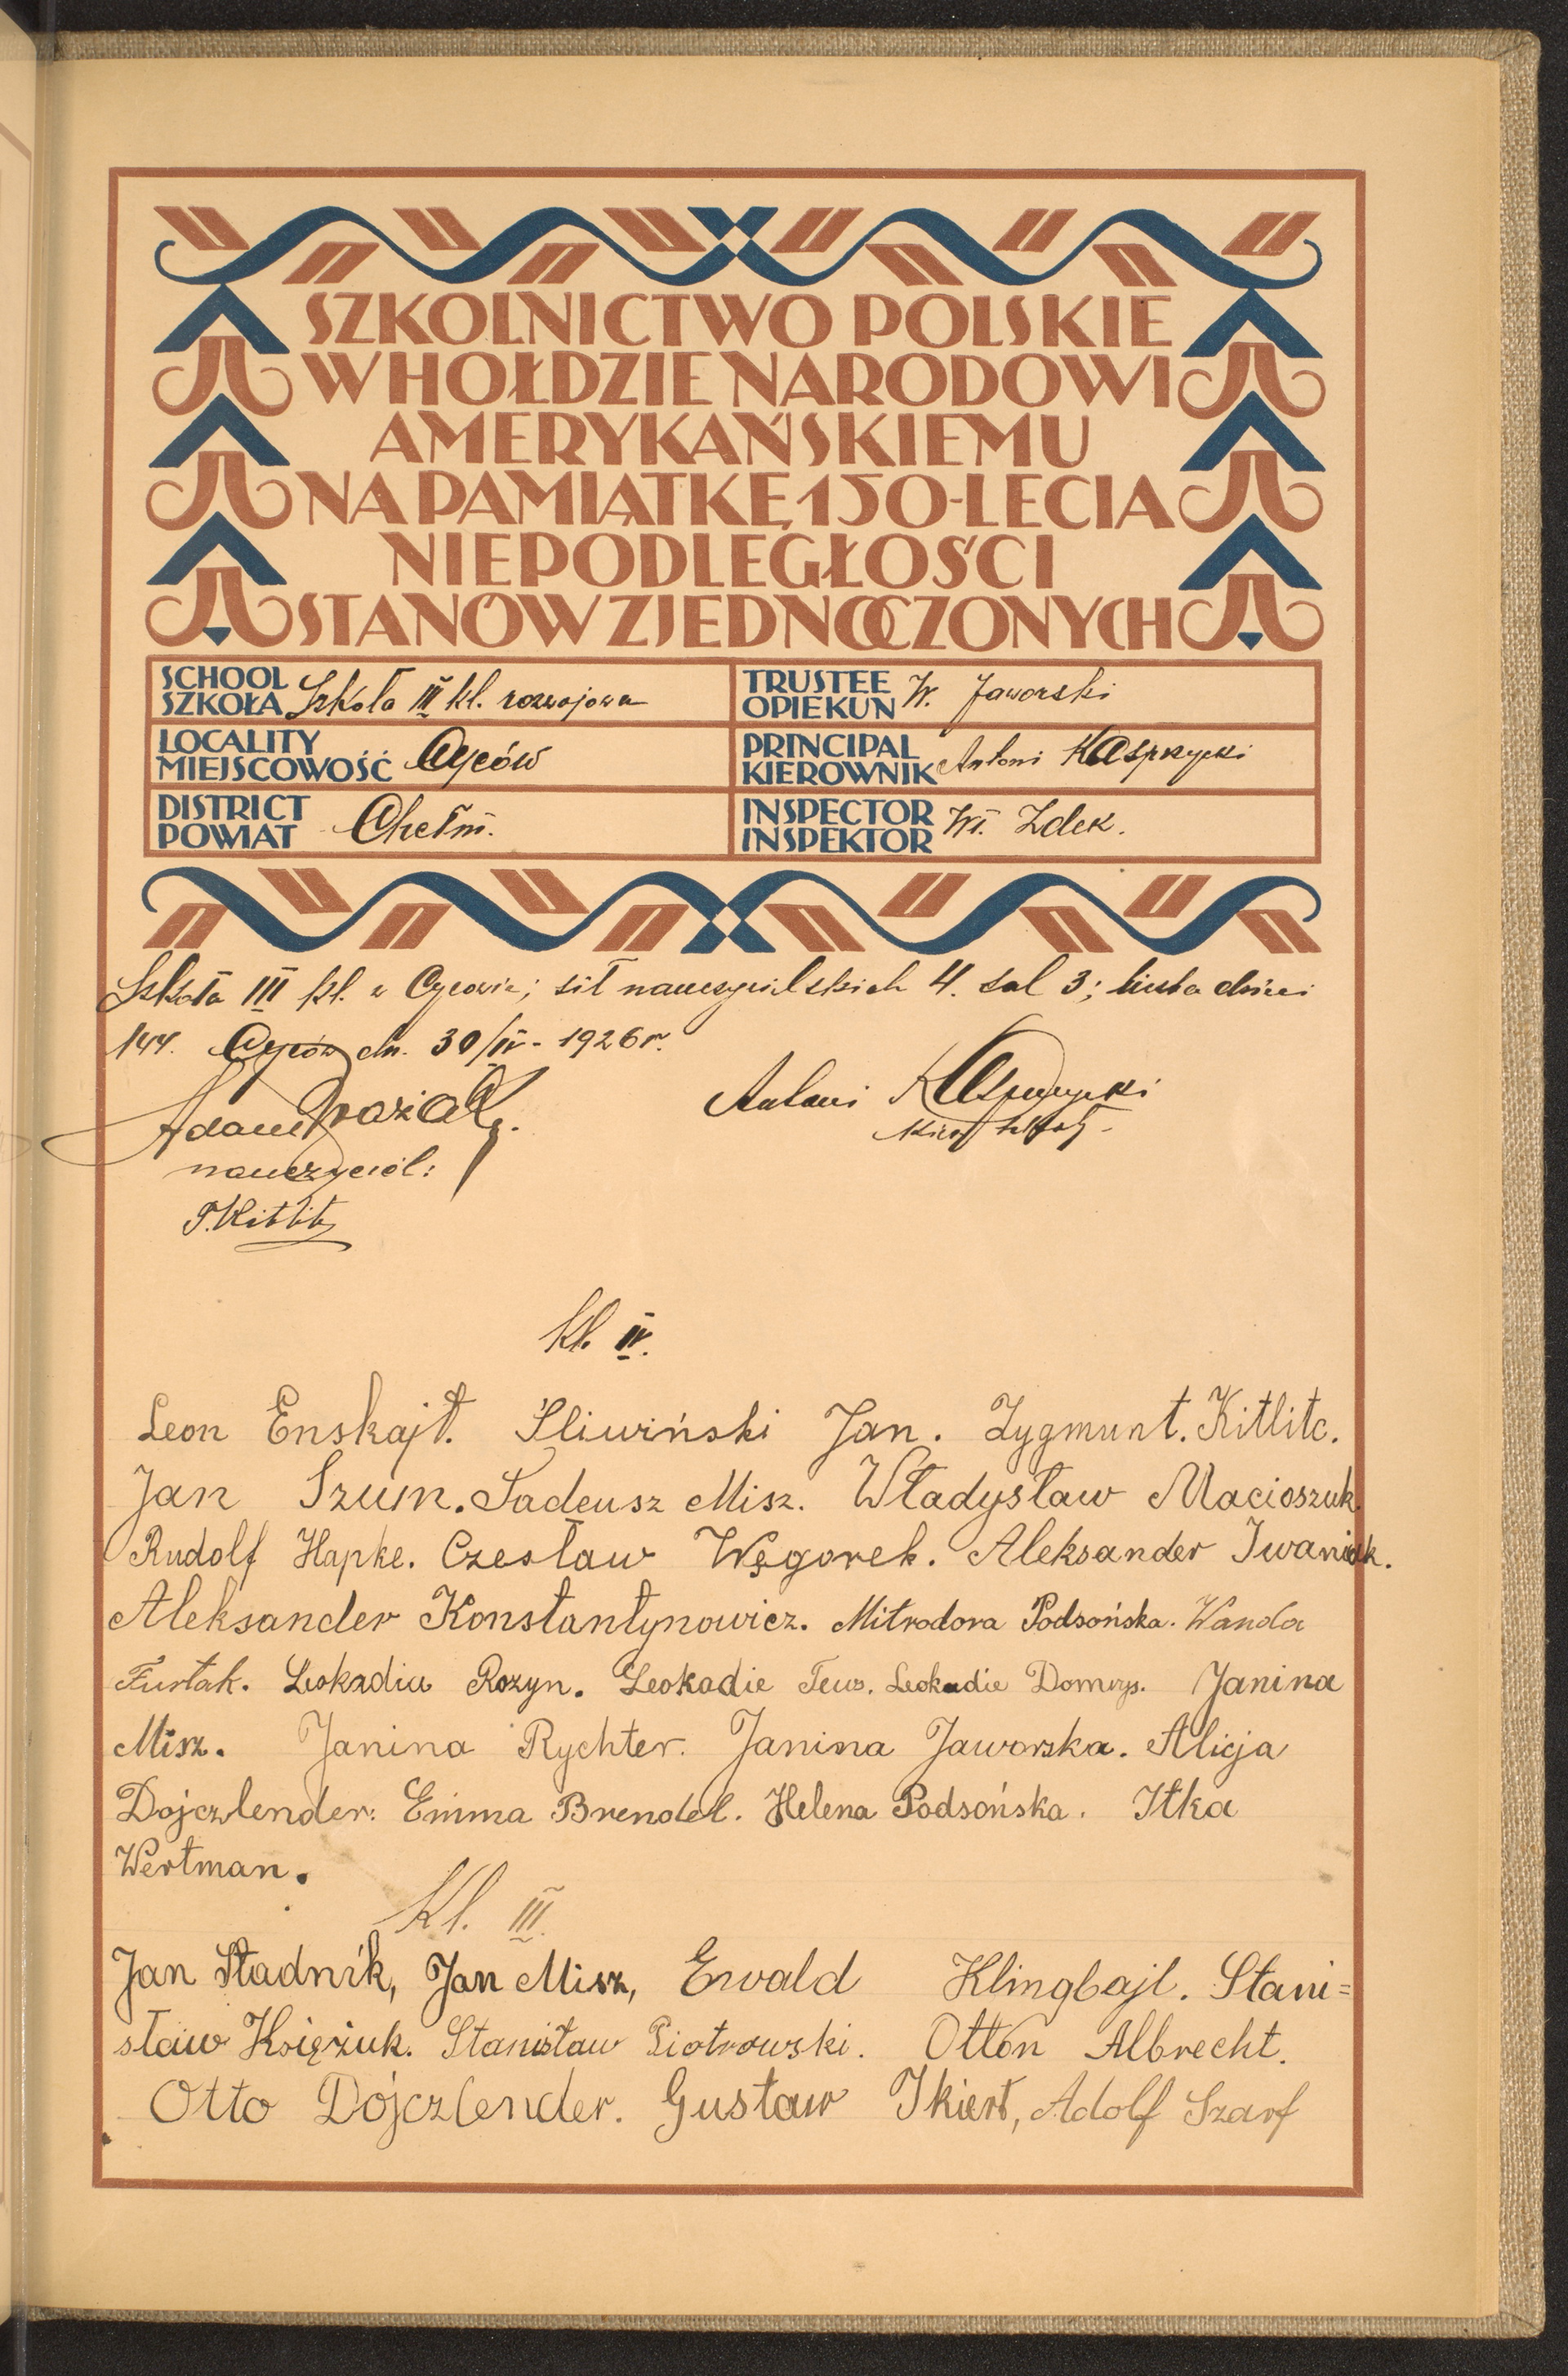 SZKOLNICTWO POLSKIE
W HOŁDZIE NARODOWI
AMERYKAŃSKIEMU
NA PAMIĄTKĘ 150-LECIA
NIEPODLEGŁOŚCI
STANÓW ZJEDNOCZONYCH
SCHOOL
SZKOŁA Szkoła III kl. rozwojowa
TRUSTEE
OPIEKUN W. Jaworski
LOCALITY
MIEJSCOWOŚĆ Cyców
PRINCIPAL
KIEROWNIK Antoni Kasprzycki
DISTRICT
POWIAT Chełm.
INSPECTOR
INSPEKTOR Wł. Zdek.
Szkoła III kl. w Cycowie; sił nauczycielskich 4. sal 3; liczba dzieci
144. Cyców dn. 30/IV - 1926 r.
Adam
Antoni Kasprzycki
nauczyciel:
T. Kittlitz
kl. IV.
Leon Enskajt. Śliwiński Jan. Zygmunt. Kitlitc.
Jan Szum. Tadeusz Misz. Władysław Macioszuk.
Rudolf Hapke. Czesław Węgorek. Aleksander Iwaniak.
Aleksander Konstantynowicz. Mitrodora Podsońska. Wanda
Furtak. Leokadia Rozyn. Leokadie Tews. Leokadie Domrys. Janina
Misz. Janina Rychter. Janina Jaworska. Alicja
Dojczlender. Emma Brendel. Helena Podsońska. Itka
Wertman.
Kl. III.
Jan Stadnik, Jan Misz, Ewald Klingbajl. Stani=
sław Księżuk. Stanisław Piotrowski. Otton Albrecht.
Otto Dojczlender. Gustaw Ikiert, Adolf Szarf